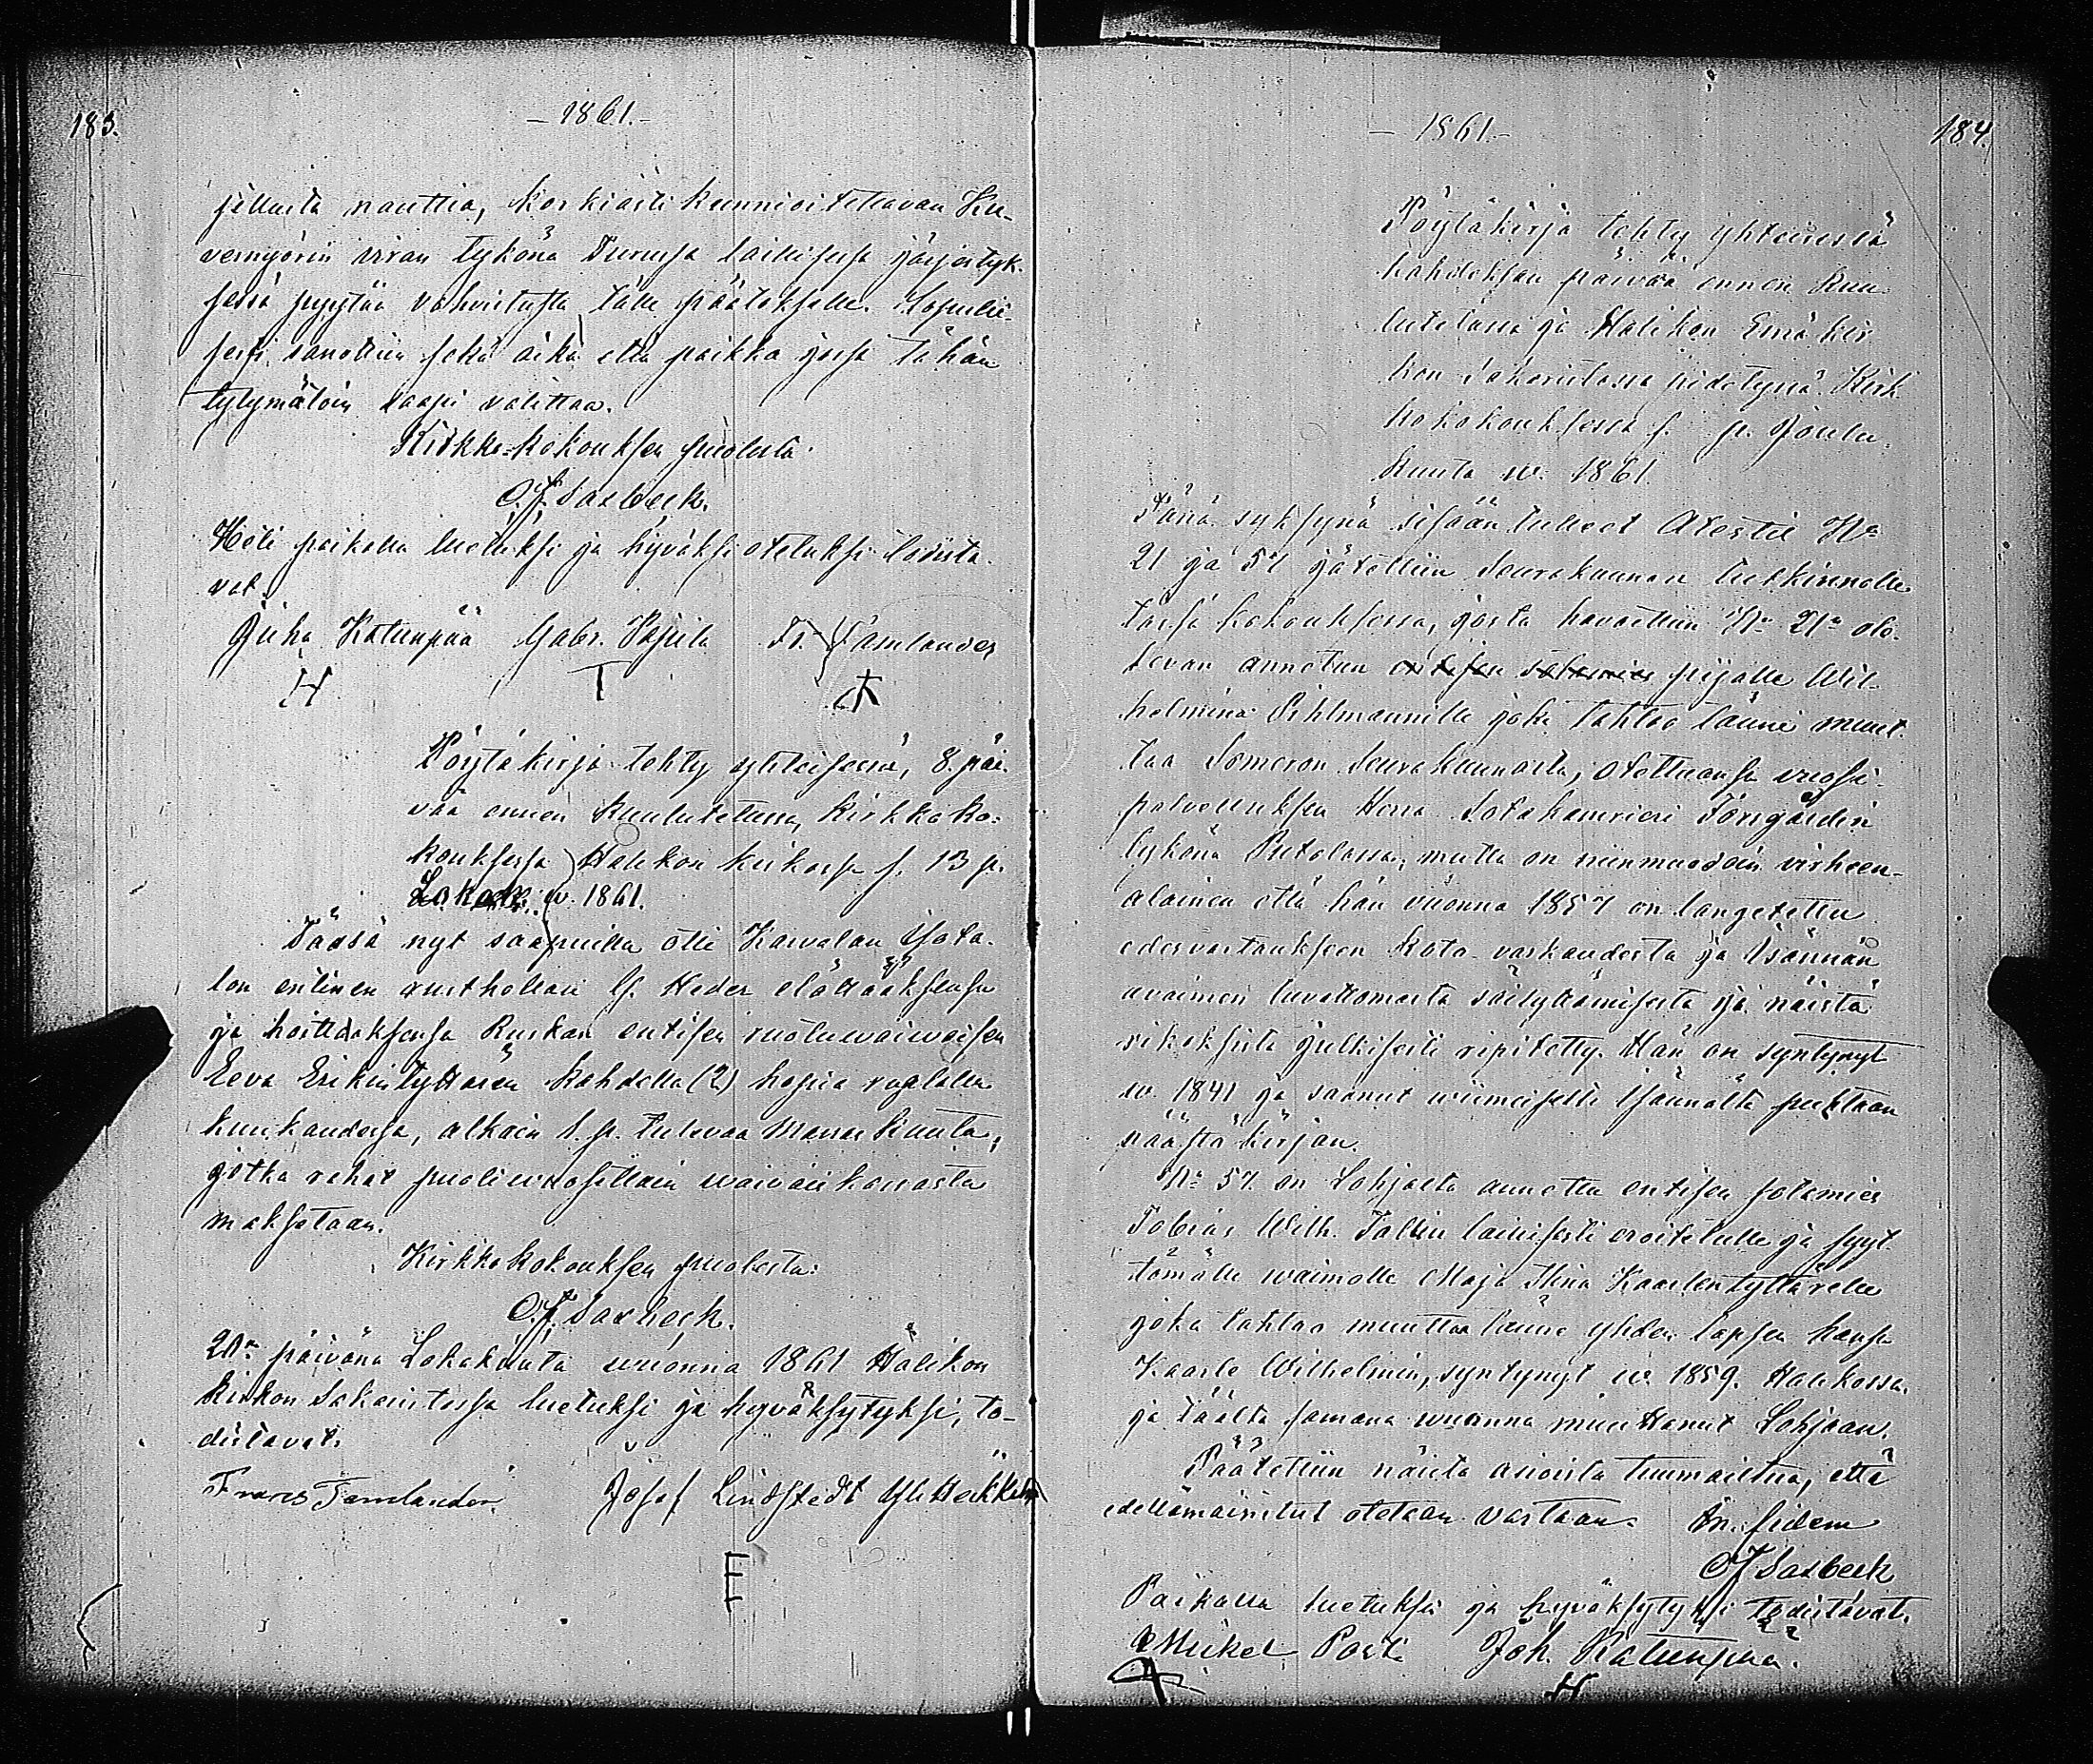 183.
- 1861. -
jellusta nauttia, korkiasti kunnioitettavan Ku-
vernyörin viran tykönä Turussa laillisessa järjestyk-
sessä pyytää vahvistusta tälle päätökselle. Lopulli-
sesti sanottiin sekä aika että paikka jossa tähän
tytymätöin saapi valittaa.
Kirkko-kokouksen puolesta
C. J. Saxbeck.
Heti paikalla luetuksi ja hyväksi otetuksi todista-
vat.
Juha Katunpää Gabr. Pajula Fr. Tamlander
H T
Pöytäkirja tehty yhteisessä, 8. päi-
vää ennen kuulutetussa, kirkkoko-
kouksessa Halikon kirkossa s. 13 p.
Lokak. w. 1861.
Tässä nyt saapuilla olli Karvalan
lon entinen rusthollari Heder elättääksensä
ja hoittaaksensa Ruskan entisen ruotuwaiwaisen
Eeva Erikintyttären kahdella (2) hopia ruplalla
kuukaudessa, alkain 1. p. tulevaa Marras kuuta,
jotka rahat puoliwuosittain waiwaiskassasta
maksetaan.
Kirkkokokouksen puolesta:
C. J. Saxbeck.
20:n päivänä Lokakuuta wuonna 1861 Halikon
kirkon Sakaristossa luetuksi ja hyväksytyksi, to-
distavat.
Frans Tamlander. Josef Lindstedt Yli Heikkilä
E
- 1861. -
184.
Pöytäkirja tehty yhteisessä
kahdeksan päivää ennen Kuu-
lutetussa ja Halikon Emäkir
kon Sakaristossa pidetyssä Kirk
kokokouksessa s. p. Joulu-
Kuuta w. 1861.
Tänä syksynä sisään tulleet Atestit No
21 ja 57 jätettiin Seurakunnan tutkinnolle
tässä kokouksessa, josta havaittiin No 21 ole-
tevan annetun pijalle Wil-
helmina Pihlmannille joka tahtoo tänne muut-
taa Someron Seurakunnasta, otettuansa vuosi-
palvelluksen Herra Sotakamrieri Törngårdin
tykönä Putolassa; mutta on niinmuodoin virheen-
alainen että hän vuonna 1857 on langetettu
edesvastaukseen koto-varkaudesta ja Isännän
avaimen luvattomasta säilyttämisestä ja näistä
rikoksista julkisesti ripitetty. Hän on syntynyt
w. 1841 ja saanut wiimeiseltä Isännältä puhtaan
päästö kirjan.
No 57. on Lohjalta annettu entisen sotamies
Tobias Wilh. Tallin laillisesti eroitetulle ja syyt-
tömälle waimolle Maja Stina Kaarlentyttärelle
joka tahtoo muuttaa tänne yhden lapsen kanssa
Kaarlo Wilhelmin, syntynyt w. 1859. Halikossa.
ja täältä samana wuonna muuttanut Lohjaan.
Päätettiin näistä asioista tuumailtua, että
edellämainitut otetaan vastaan. In fidem
C J Saxbeck
Paikalla luetuksi ja hyväksytyksi todistavat.
Mickel Posti Joh. Katunpää.
H